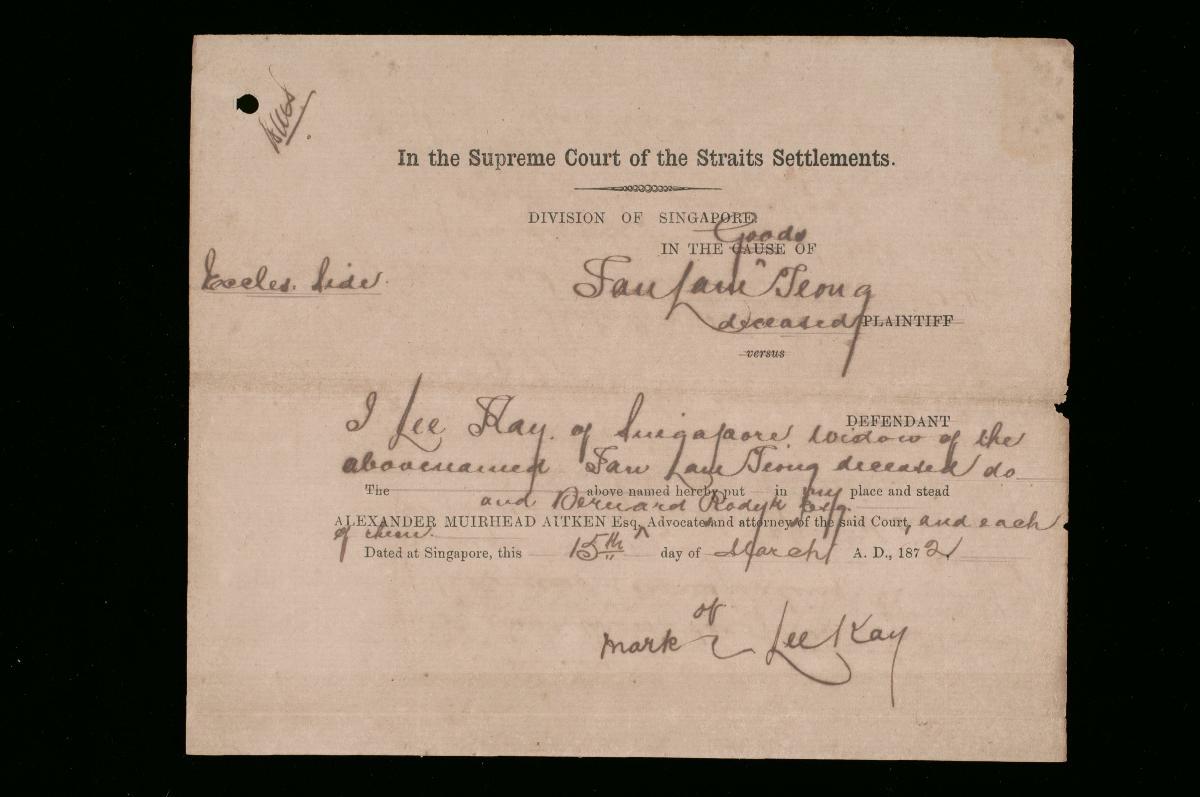 In the Supreme Court of the Straits Settlements.
DIVISION OF SINGAPORE
Goods
IN THE CAUSE OF
Eccles. Side.
Tan Lam Teong
deceased PLAINTIFF
versus
DEFENDANT
I Lee Kay of Singapore widow of the
abovenamed Tan Lam Teong deceased do
The above named hereby put in my place and stead
and Bernard Rodyk Esq.
ALEXANDER MUIRHEAD AITKEN Esq. ^ Advocate and attorney of the said Court, and each
of them.
Dated at Singapore, this 15th day of March A. D., 1872
of
mark Lee Kay